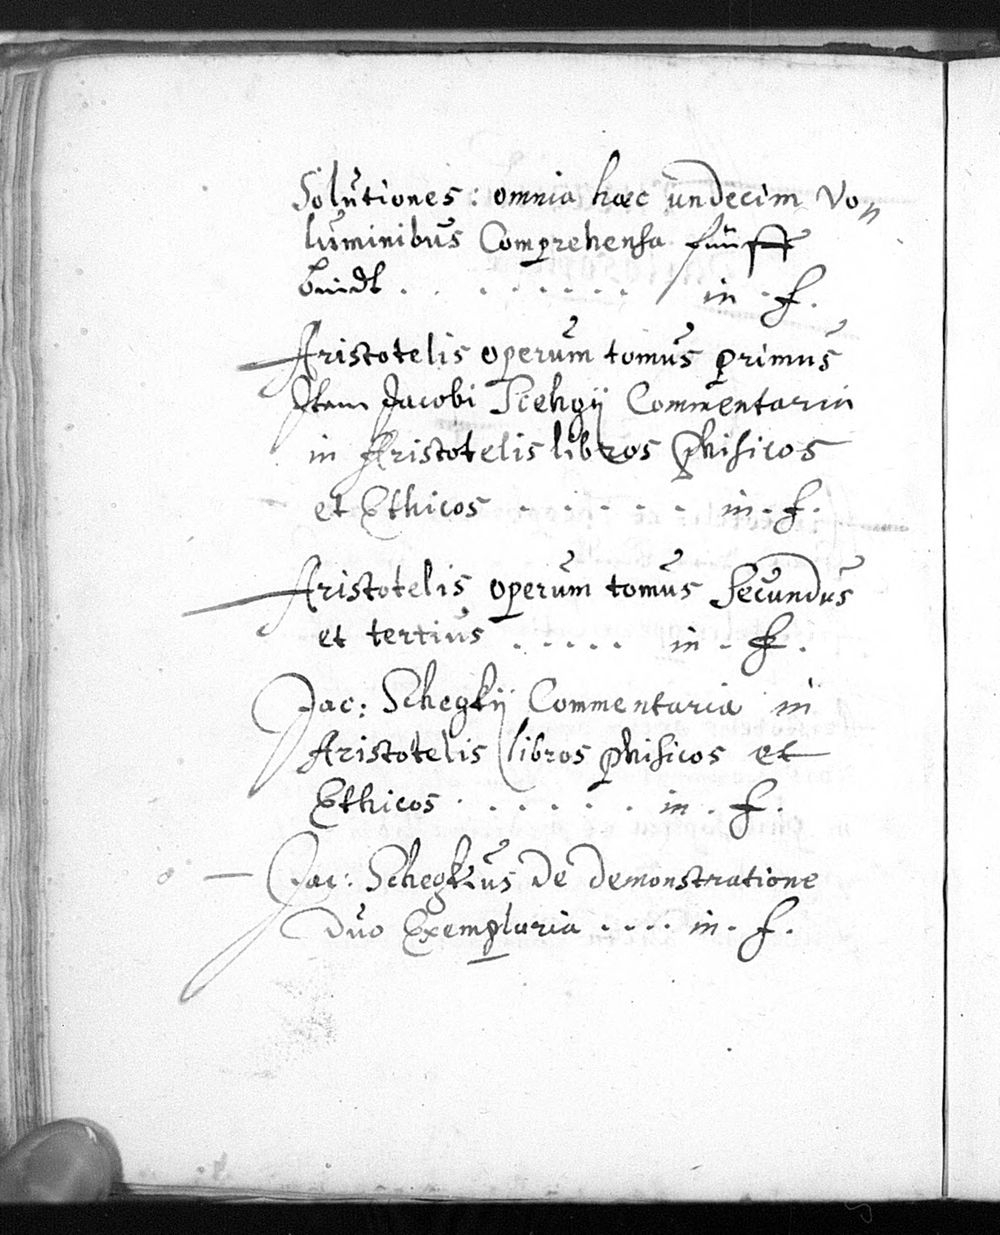 Solutiones: omnia hæc undecim Vo„
luminibus Comprehensa fünff
bundt . . . . . . . . in . f.
Aristotelis operum tomus primus
Item Jacobi Scehgij Commentaria
in Aristotelis libros phisicos
et Ethicos . . . . . . in . f.
Aristotelis operum tomus secundus
et tertius . . . . . in . f.
Jac: Schegkij Commentaria in
Aristotelis libros phisicos et
Ethicos . . . . . . . in . f.
Jac: Schegkius de demonstratione
duo Exemplaria . . . . in . f.